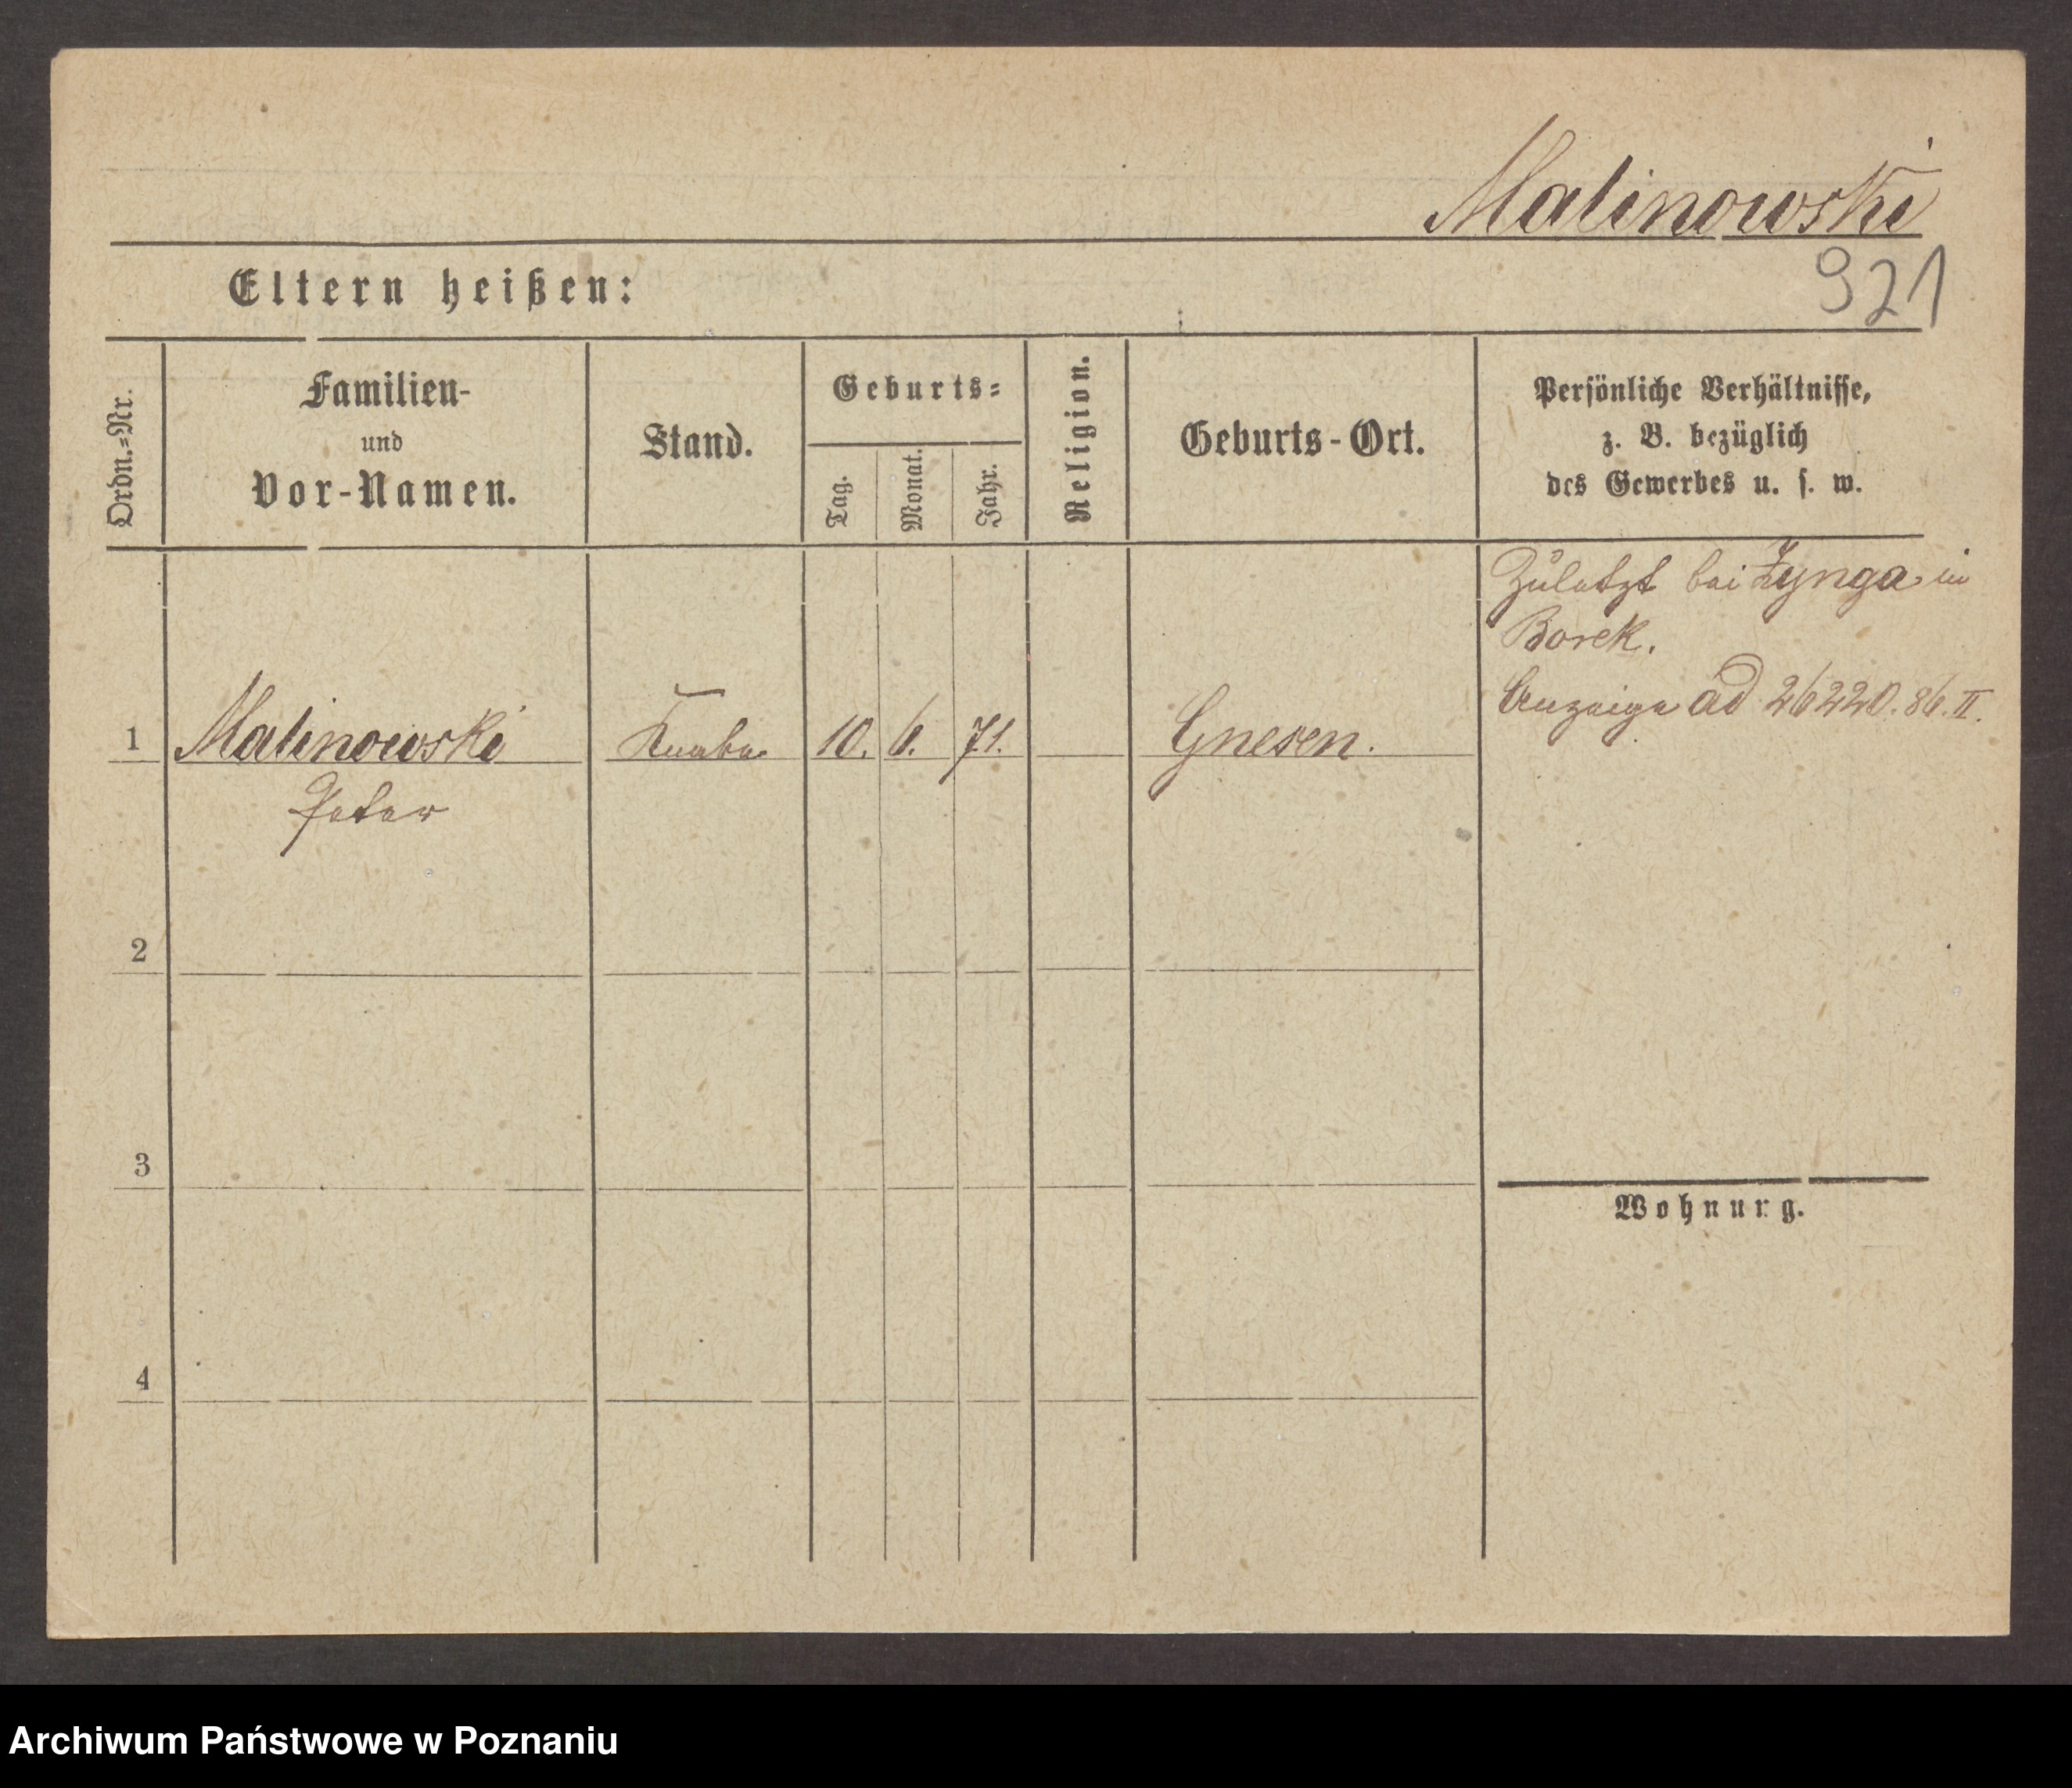 Malinowski
921
Eltern heißen:
Ordn.=Nr.
Familien-
und
Vor-Namen.
Stand.
Geburts=
Tag.
Monat.
Jahr.
Religion.
Geburts-Ort.
Persönliche Verhältnisse,
z. B. bezüglich
des Gewerbes u. s. w.
Zuletzt bei Zynga in
Borek.
Anzeige ad 26220. 86. II.
1 Malinowski Knabe 10. 6. 71. Gnesen.
Peter
2
3
Wohnung.
4
Archiwum Państwowe w Poznaniu